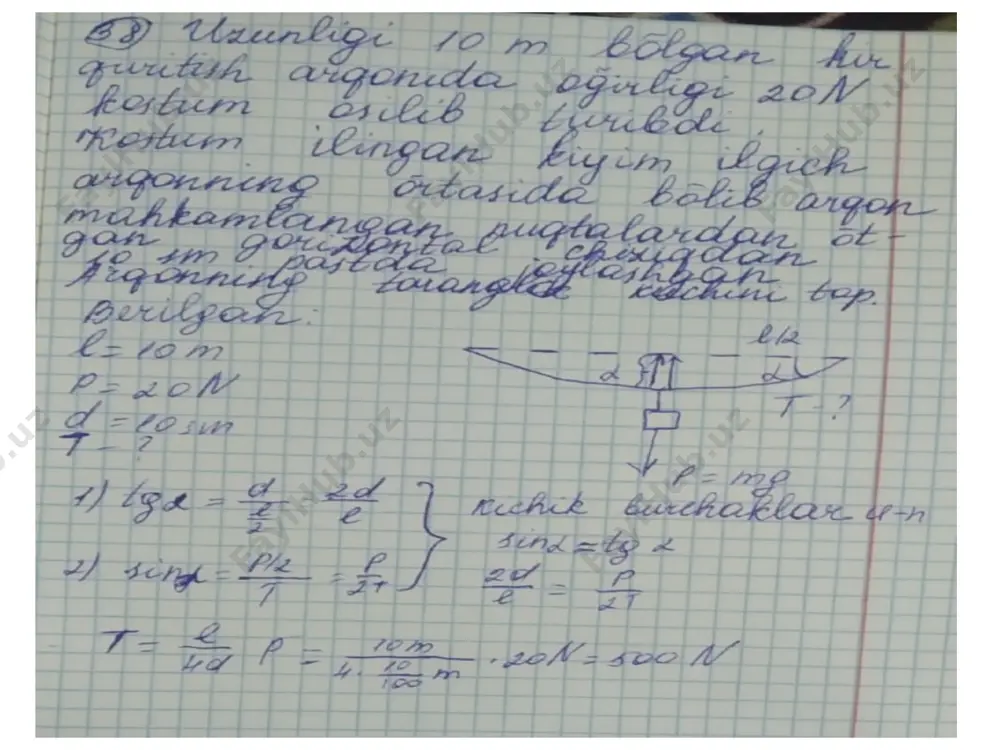 38) Uzunligi 10 m bōlgan kir
quritish arqonida oğirligi 20N
kostum osilib turibdi,
Kostum ilingan kiyim ilgich
arqonning ōrtasida bōlib arqon
mahkamlangan nuqtalardan ōt-
gan gorizontal chiziqdan
10 sm pastda joylashgan
Arqonning taranglik kuchini top.
Berilgan:
l = 10 m
P = 20N
d = 10 sm
T - ?
l/2
α
α
T - ?
P = mg
1) tgα = d/(l/2) = 2d/l
2) sinα = (P/2)/T = P/2T
kichik burchaklar u-n
sinα = tg α
2d/l = P/2T
T = l/4d P = 10 m/(4 · 10/100 m) · 20N = 500 N
FaylHub.uz
FaylHub.uz
FaylHub.uz
FaylHub.uz
FaylHub.uz